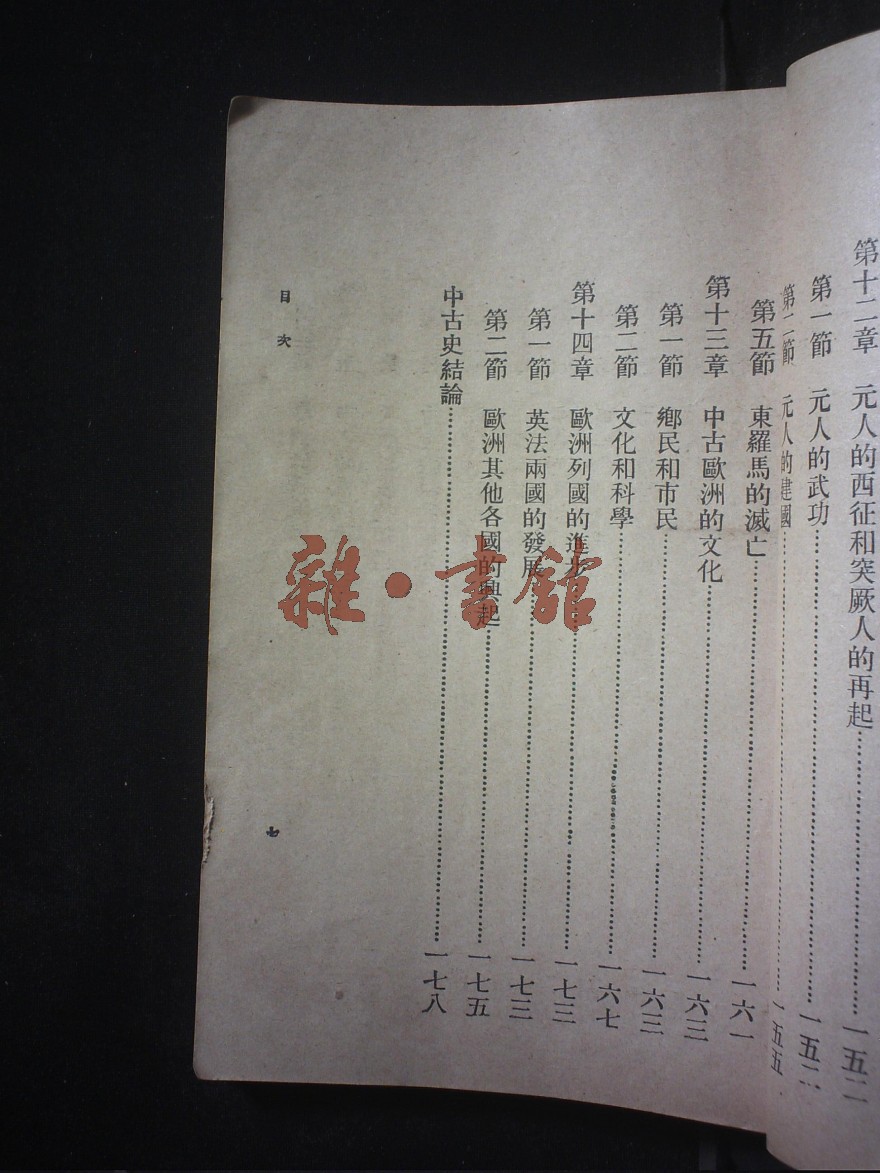 第十二章　元人的西征和突厥人的再起……一五二
第一節　元人的武功……一五二
第二節　元人的建國……一五五
第五節　東羅馬的滅亡……一六一
第十三章　中古歐洲的文化……一六三
第一節　鄉民和市民……一六三
第二節　文化和科學……一六七
第十四章　歐洲列國的進步……一七三
第一節　英法兩國的發展……一七三
第二節　歐洲其他各國的興起……一七五
中古史結論……一七八
目次
七
雜·書館